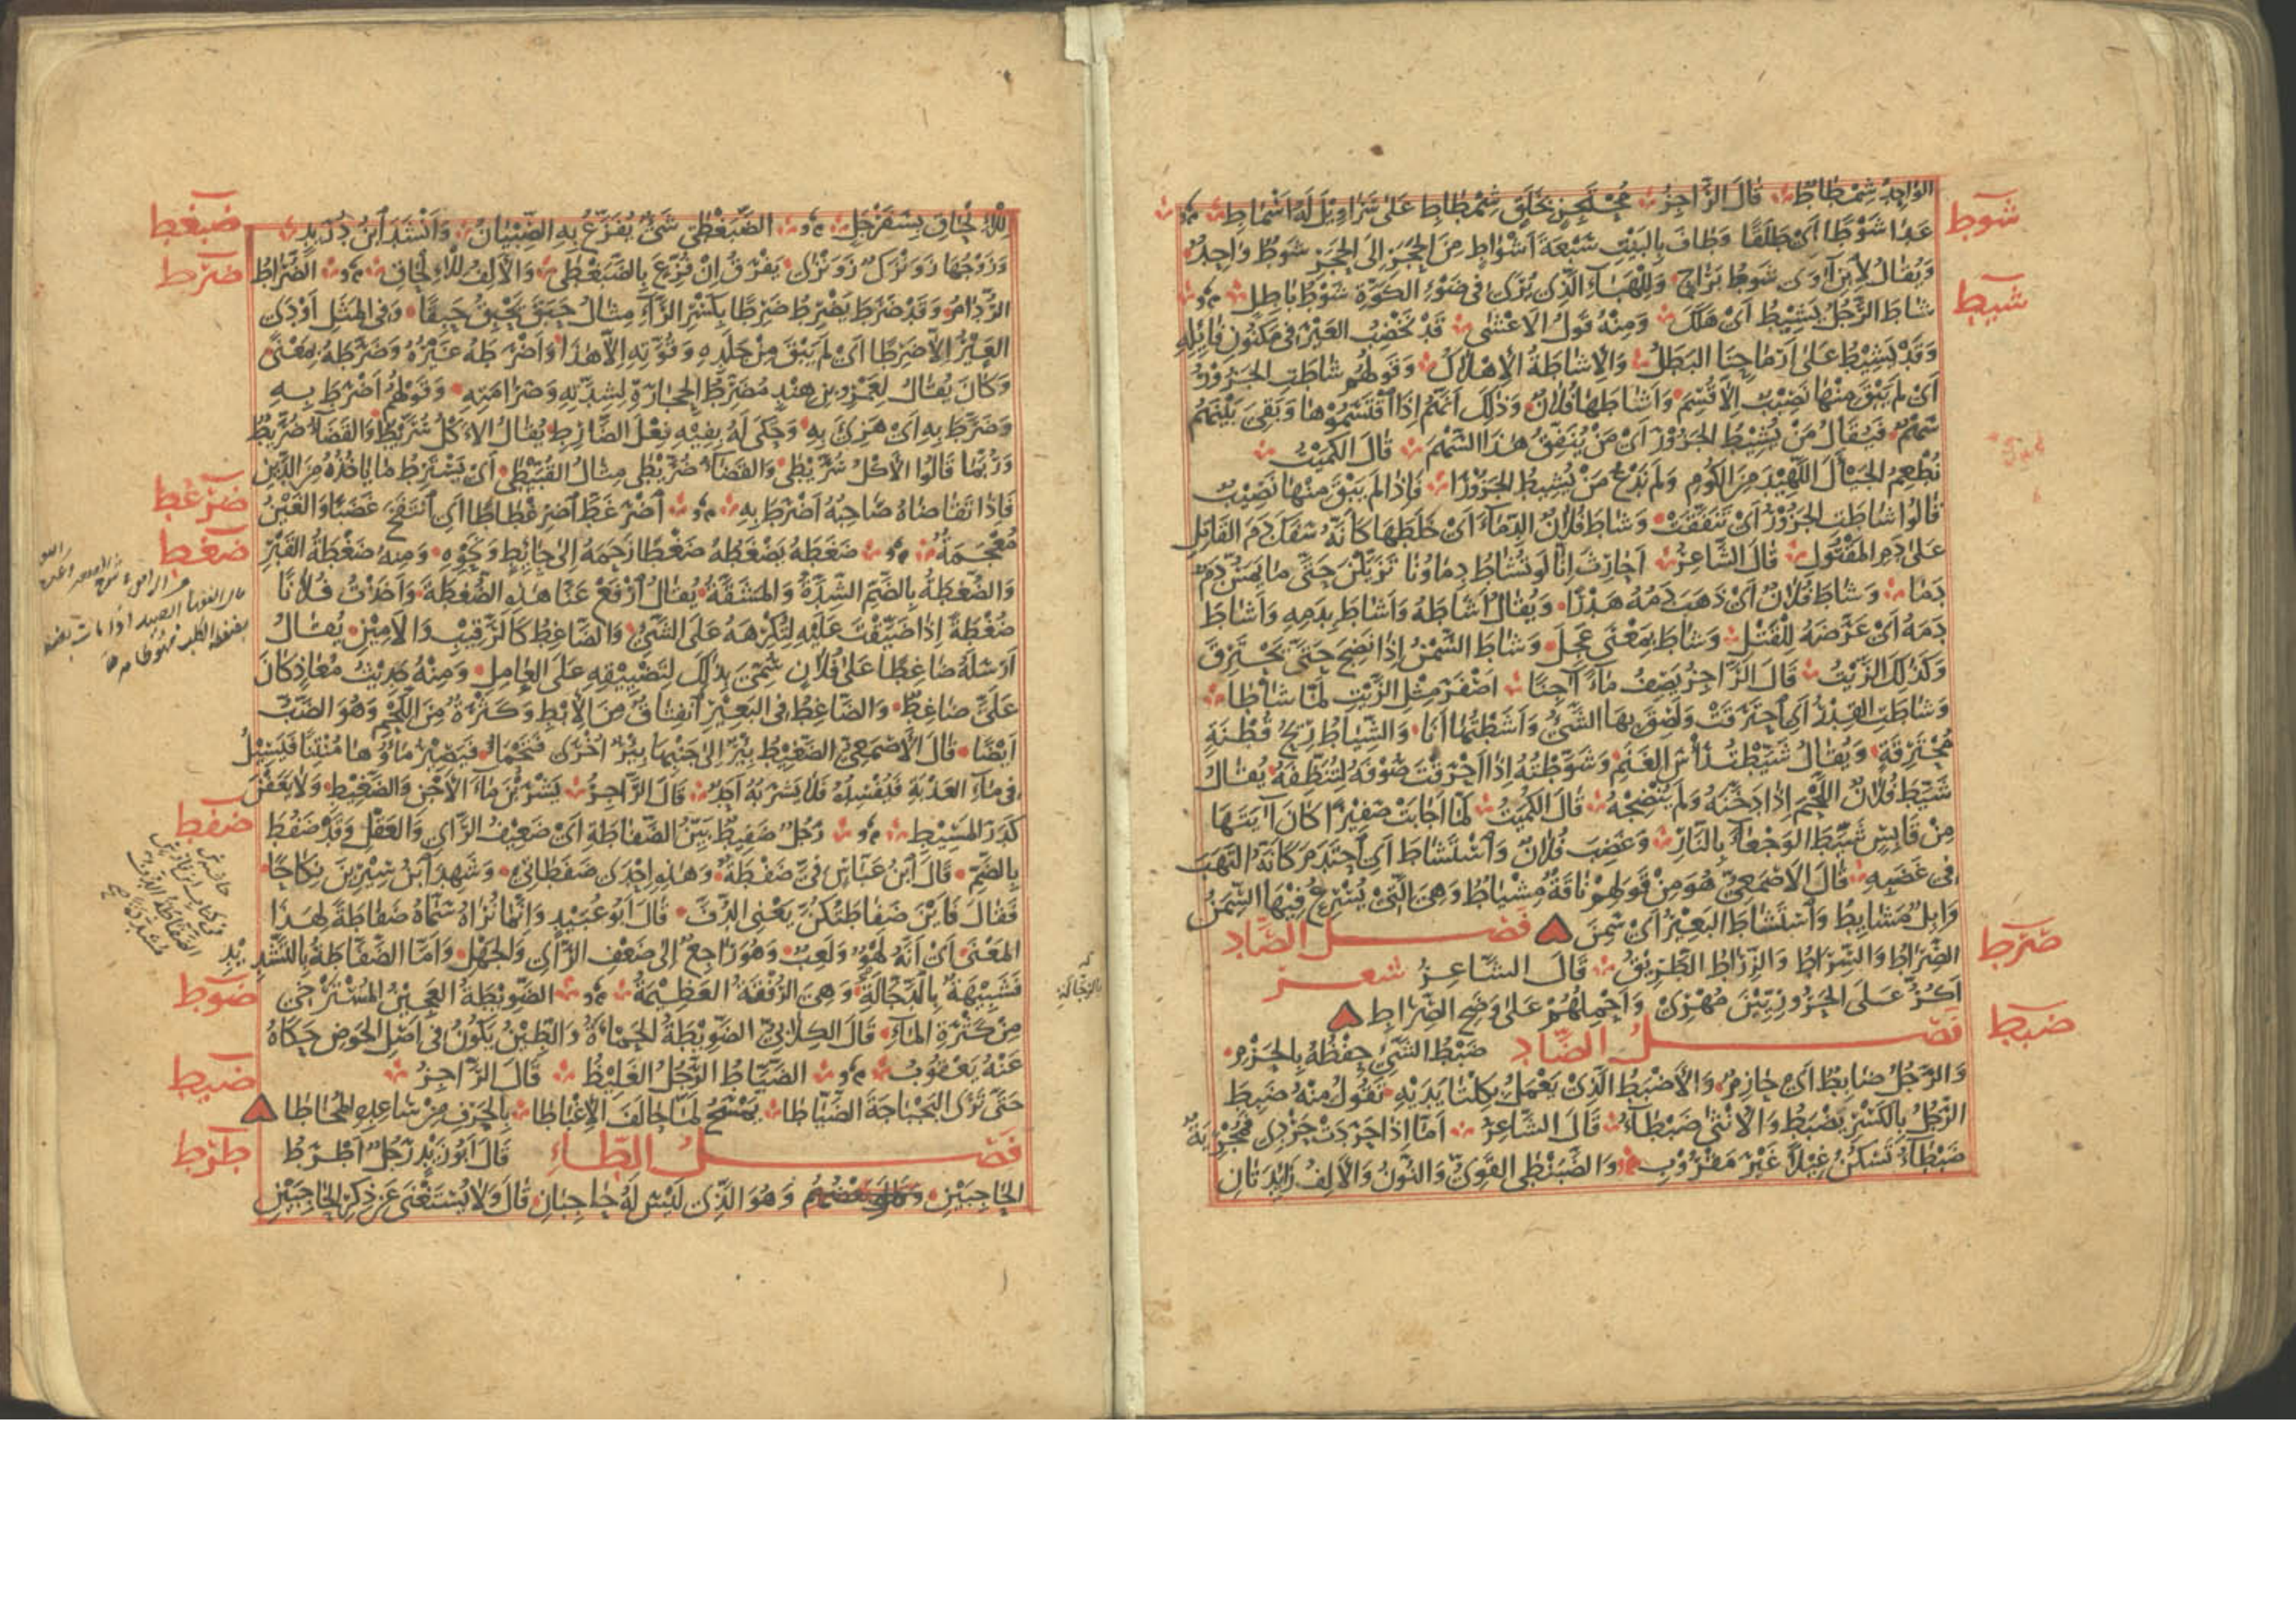 الوَاحِدُ شِمْطَاطٌ قَالَ الرَّاجِزُ مُحْتَجِزٍ بِخَلَقٍ شِمْطَاطِ عَلَى سَرَاوِيلَ لَهُ أَسْمَاطِ
شوط
عَدَا شَوْطًا أَيْ طَلَقًا وَطَافَ بِالبَيْتِ سَبْعَةَ أَشْوَاطٍ مِنَ الحَجَرِ إِلَى الحَجَرِ شَوْطٌ وَاحِدٌ
وَيُقَالُ لِابْنِ آوَى شَوْطُ بَرَاحٍ وَلِلْهَبَاءِ الَّذِي يُرَى فِي ضَوْءِ الكَوَّةِ شَوْطُ بَاطِلٍ
شيط
شَاطَ الرَّجُلُ يَشِيطُ أَيْ هَلَكَ وَمِنْهُ قَوْلُ الأَعْشَى قَدْ نَخْضِبُ العَيْرَ فِي مَكْنُونِ فَائِلِهِ
وَقَدْ يَشِيطُ عَلَى أَرْمَاحِنَا البَطَلُ وَالإِشَاطَةُ الإِهْلَاكُ وَقَوْلُهُمْ شَاطَتِ الجَزُورُ
أَيْ لَمْ يَبْقَ مِنْهَا نَصِيبٌ إِلَّا قُسِمَ وَأَشَاطَهَا فُلَانٌ وَذَلِكَ أَنَّهُمْ إِذَا اقْتَسَمُوهَا وَبَقِيَ بَيْنَهُمْ
سَهْمٌ فَيُقَالُ مَنْ يُشِيطُ الجَزُورَ أَيْ مَنْ يُنَفِّقُ هَذَا السَّهْمَ قَالَ الكُمَيْتُ
نُطْعِمُ الجَيْأَلَ اللَّهِيدَ مِنَ الكُومِ وَلَمْ نَدْعُ مَنْ يُشِيطُ الجَزُورَا فَإِذَا لَمْ يَبْقَ مِنْهَا نَصِيبٌ
قَالُوا شَاطَتِ الجَزُورُ أَيْ تَنَفَّقَتْ وَشَاطَ فُلَانٌ الدِّمَاءَ أَيْ خَلَطَهَا كَأَنَّهُ سَفَكَ دَمَ القَاتِلِ
عَلَى دَمِ المَقْتُولِ قَالَ الشَّاعِرُ أَحَارِثُ إِنَّا لَوْ تُشَاطُ دِمَاؤُنَا تَزَيَّلْنَ حَتَّى مَا يَمَسُّ دَمٌ
دَمَا وَشَاطَ فُلَانٌ أَيْ ذَهَبَ دَمُهُ هَدْرًا وَيُقَالُ أَشَاطَهُ وَأَشَاطَ بِدَمِهِ وَأَشَاطَ
دَمَهُ أَيْ عَرَّضَهُ لِلْقَتْلِ وَشَاطَ بِمَعْنَى عَجِلَ وَشَاطَ السَّمْنُ إِذَا نَضِجَ حَتَّى يَحْتَرِقَ
وَكَذَلِكَ الزَّيْتُ قَالَ الرَّاجِزُ يَصِفُ مَاءً آجِنًا أَصْفَرَ مِثْلَ الزَّيْتِ لَمَّا شَاطَا
وَشَاطَتِ القِدْرُ أَيِ احْتَرَقَتْ وَلَصِقَ بِهَا الشَّيْءُ وَأَشَطْتُهَا أَنَا وَالشِّيَاطُ رِيحُ قُطْنَةٍ
مُحْتَرِقَةٍ وَيُقَالُ شَيَّطْتُ رَأْسَ الغَنَمِ وَشَوَّطْتُهُ إِذَا أَحْرَقْتَ صُوفَهُ لِتُنَظِّفَهُ يُقَالُ
شَيَّطَ فُلَانٌ اللَّحْمَ إِذَا دَخَّنَهُ وَلَمْ يُنْضِجْهُ قَالَ الكُمَيْتُ لَمَّا أَجَابَتْ صَفِيرًا كَانَ آيَتَهَا
مِنْ قَابِسٍ شَيَّطَ الوَجْعَاءَ بِالنَّارِ وَغَضِبَ فُلَانٌ وَاسْتَشَاطَ أَيِ احْتَدَمَ كَأَنَّهُ الْتَهَبَ
فِي غَضَبِهِ قَالَ الأَصْمَعِيُّ هُوَ مِنْ قَوْلِهِمْ نَاقَةٌ مِشْيَاطٌ وَهِيَ الَّتِي يُسْرِعُ فِيهَا السِّمَنُ
وَإِبِلٌ مَشَايِيطُ وَاسْتَشَاطَ البَعِيرُ أَيْ سَمِنَ فصل الصّاد
صرط
الصِّرَاطُ وَالسِّرَاطُ وَالزِّرَاطُ الطَّرِيقُ قَالَ الشَّاعِرُ شعر
أَكُرُّ عَلَى الحَرُورِيِّينَ مُهْرِي وَأَحْمِلُهُمْ عَلَى وَضَحِ الصِّرَاطِ
ضبط
فصل الضّاد ضَبْطُ الشَّيْءِ حِفْظُهُ بِالحَزْمِ
وَالرَّجُلُ ضَابِطٌ أَيْ حَازِمٌ وَالأَضْبَطُ الَّذِي يَعْمَلُ بِكِلْتَا يَدَيْهِ تَقُولُ مِنْهُ ضَبِطَ
الرَّجُلُ بِالكَسْرِ يَضْبَطُ وَالأُنْثَى ضَبْطَاءُ قَالَ الشَّاعِرُ أَمَّا إِذَا حَرَدَتْ حَرْدِي فَمُجْرِيَةٌ
ضَبْطَاءُ تَسْكُنُ غِيلًا غَيْرَ مَقْرُوبِ وَالضَّبَنْطَى القَوِيُّ وَالنُّونُ وَالأَلِفُ زَائِدَتَانِ
ضبغط
لِلْإِلْحَاقِ بِسَفَرْجَلٍ الضَّبَغْطَى شَيْءٌ يُفَزَّعُ بِهِ الصِّبْيَانُ وَأَنْشَدَ ابْنُ دُرَيْدٍ
ضرط
وَزَوْجُهَا زَوَنْزَكٌ زَوَنْزَى يَفْرَقُ إِنْ فُزِّعَ بِالضَّبَغْطَى وَالأَلِفُ لِلْإِلْحَاقِ الضُّرَاطُ
الرُّدَامُ وَقَدْ ضَرَطَ يَضْرِطُ ضَرِطًا بِكَسْرِ الرَّاءِ مِثَالُ حَبَقَ يَحْبِقُ حَبِقًا وَفِي المَثَلِ أَوْدَى
العَيْرُ إِلَّا ضَرِطًا أَيْ لَمْ يَبْقَ مِنْ جَلَدِهِ وَقُوَّتِهِ إِلَّا هَذَا وَأَضْرَطَهُ غَيْرُهُ وَضَرَّطَهُ بِمَعْنًى
وَكَانَ يُقَالُ لِعَمْرِو بْنِ هِنْدٍ مُضَرِّطُ الحِجَارَةِ لِشِدَّتِهِ وَصَرَامَتِهِ وَقَوْلُهُمْ أَضْرَطَ بِهِ
وَضَرَّطَ بِهِ أَيْ هَزِئَ بِهِ وَحَكَى لَهُ بِفِيهِ فِعْلَ الضَّارِطِ يُقَالُ الأَكْلُ سُرَّيْطٌ وَالقَضَاءُ ضُرَّيْطٌ
وَرُبَّمَا قَالُوا الأَكْلُ سُرَّيْطَى وَالقَضَاءُ ضُرَّيْطَى مِثَالُ القُبَّيْطَى أَيْ يَسْتَرِطُ مَا يَأْخُذُهُ مِنَ الدَّيْنِ
ضرغط
فَإِذَا تَقَاضَاهُ صَاحِبُهُ أَضْرَطَ بِهِ اضْرَغَطَّ اضْرِغْطَاطًا أَيِ انْتَفَخَ غَضَبًا وَالغَيْنُ
ضغط
مُعْجَمَةٌ ضَغَطَهُ يَضْغَطُهُ ضَغْطًا زَحَمَهُ إِلَى حَائِطٍ وَنَحْوِهِ وَمِنْهُ ضَغْطَةُ القَبْرِ
وَالضُّغْطَةُ بِالضَّمِّ الشِّدَّةُ وَالمَشَقَّةُ يُقَالُ ارْفَعْ عَنَّا هَذِهِ الضُّغْطَةَ وَأَخَذْتُ فُلَانًا
ضُغْطَةً إِذَا ضَيَّقْتَ عَلَيْهِ لِتُكْرِهَهُ عَلَى الشَّيْءِ وَالضَّاغِطُ كَالرَّقِيبِ وَالأَمِينِ يُقَالُ
أَرْسَلَهُ ضَاغِطًا عَلَى فُلَانٍ سُمِّيَ بِذَلِكَ لِتَضْيِيقِهِ عَلَى العَامِلِ وَمِنْهُ حَدِيثُ مُعَاذٍ كَانَ
عَلَيَّ ضَاغِطٌ وَالضَّاغِطُ فِي البَعِيرِ انْفِتَاقٌ مِنَ الإِبْطِ وَكَثْرَةٌ مِنَ اللَّحْمِ وَهُوَ الضَّبُّ
أَيْضًا قَالَ الأَصْمَعِيُّ الضَّغِيطُ بِئْرٌ إِلَى جَنْبِهَا بِئْرٌ أُخْرَى فَتَحْمَأُ فَيَصِيرُ مَاؤُهَا مُنْتِنًا فَيَسِيلُ
فِي مَاءِ العَذْبَةِ فَيُفْسِدُهُ فَلَا يَشْرَبُهُ أَحَدٌ قَالَ الرَّاجِزُ يَشْرَبْنَ مَاءَ الأَجْنِ وَالضَّغِيطِ وَلَا يَعَفْنَ
ضفط
كَدَرَ المَسِيطِ رَجُلٌ ضَفِيطٌ بَيِّنُ الضَّفَاطَةِ أَيْ ضَعِيفُ الرَّأْيِ وَالعَقْلِ وَقَدْ ضَفُطَ
بِالضَّمِّ قَالَ ابْنُ عَبَّاسٍ فِيَّ ضَفْطَةٌ وَهَذِهِ إِحْدَى ضَفَطَاتِي وَشَهِدَ ابْنُ سِيرِينَ نِكَاحًا
فَقَالَ فَأَيْنَ ضَفَاطَتُكُنَّ يَعْنِي الدُّفَّ قَالَ أَبُو عُبَيْدٍ وَإِنَّمَا نُرَاهُ سَمَّاهُ ضَفَاطَةً لِهَذَا
المَعْنَى أَيْ أَنَّهُ لَهْوٌ وَلَعِبٌ وَهُوَ رَاجِعٌ إِلَى ضَعْفِ الرَّأْيِ وَالجَهْلِ وَأَمَّا الضَّفَّاطَةُ بِالتَّشْدِيدِ
ضوط
فَشَبِيهَةٌ بِالدَّجَّالَةِ وَهِيَ الرُّفْقَةُ العَظِيمَةُ الضَّوِيطَةُ العَجِينُ المُسْتَرْخِي
مِنْ كَثْرَةِ المَاءِ قَالَ الكِلَابِيُّ الضَّوِيطَةُ الحَمْأَةُ وَالطِّينُ يَكُونُ فِي أَصْلِ الحَوْضِ حَكَاهُ
ضيط
عَنْهُ يَعْقُوبُ الضَّيَّاطُ الرَّجُلُ الغَلِيظُ قَالَ الرَّاجِزُ
حَتَّى تَرَى البَجْبَاجَةَ الضَّيَّاطَا يَمْسَحُ لَمَّا حَالَفَ الإِغْبَاطَا بِالحَرْفِ مِنْ سَاعِدِهِ المُخَاطَا
طرط
فصل الطّاء قَالَ أَبُو زَيْدٍ رَجُلٌ أَطْرَطُ
الحَاجِبَيْنِ وَهُوَ الَّذِي لَيْسَ لَهُ حَاجِبَانِ قَالَ وَلَا يُسْتَغْنَى عَنْ ذِكْرِ الحَاجِبَيْنِ